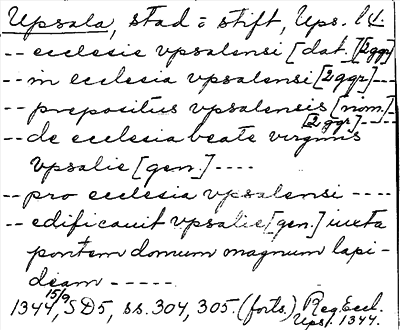 Upsala, stad o stift, Ups. l4.
-- ecclesie vpsalensi [dat.] [2ggr]
-- in ecclesia vpsalensi [2ggr] ---
-- prepositus vpsalensis [nom.] ---
[2 ggr]
-- de ecclesia beate virginis
vpsalie [gen.] ----
-- pro ecclesia vpsalensi ----
-- edificauit vpsalie [gen.] iuxta
pontem domum magnum lapi-
deam -----
1344 15/9, SD5, ss. 304, 305. (forts.) Reg. Eccl.
Ups. 1344.